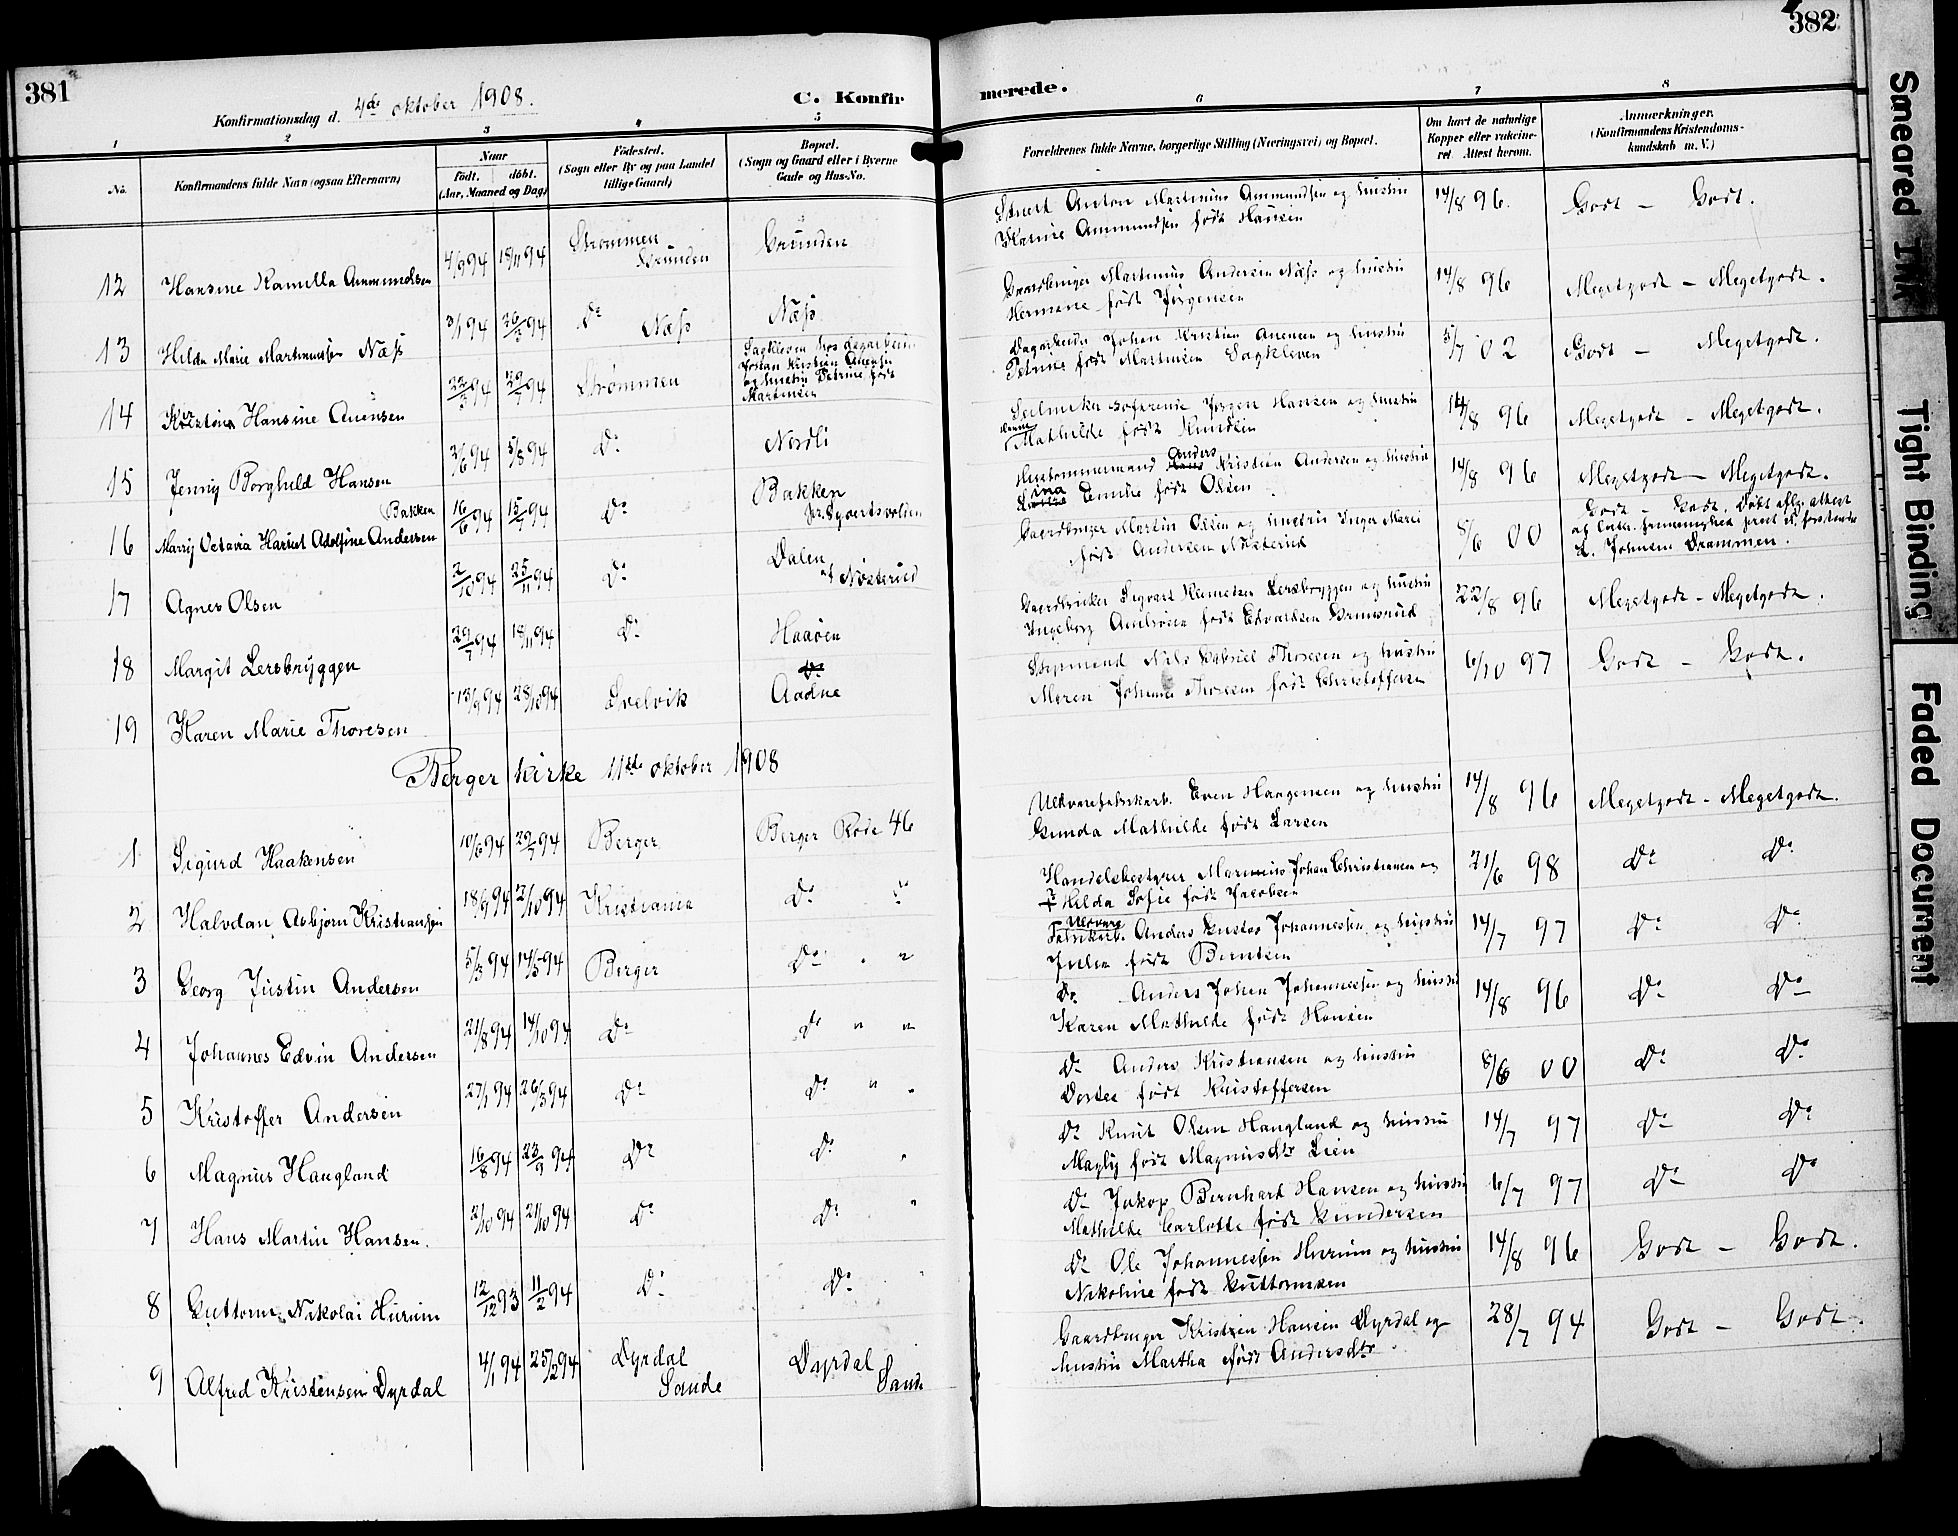 381
Konfirmationsdag d. 4de oktober 1908.
C. Konfir
merede.
382
1 2 3 4 5 6 7 8
No.
Konfirmandens fulde Navn (ogsaa Efternavn)
Naar
født. døbt.
(Aar, Maaned og Dag)
Fødested.
(Sogn eller By og paa Landet
tillige Gaard)
Bopæl.
(Sogn og Gaard eller i Byerne
Gade og Hus-No.
Forældrenes fulde Navne, borgerlige Stilling (Næringsvei) og Bopæl.
Om havt de naturlige
Kopper eller vakcine-
ret. Attest herom.
Anmærkninger.
(Konfirmandens Kristendoms-
kundskab m. V.)
12 Hansine Kamilla Ammundsen 4/9 94 18/11 94 Strømmen Grunden Grunden
Anton Martinius Ammundsen og hustru
Karine Ammundsen født Hansen
14/8 96. Godt – Godt.
13 Hilda Marie Martinussen Næss 3/1 94 26/3 94 Do Næss Næss
Gaardbruger Martinius Andersen Næss og hustru
Hermine født Jørgensen
14/8 96 Megetgodt – Megetgodt.
14 Hansine Auensen 22/5 94 29/7 94 Strømmen
Sagkleven hos dagarbeider
Johan Kristian Auensen
og hustru Petrine født
Martinsen
Dagarbeider Johan Kristian Auensen og hustru
Petrine født Martinsen Sagkleven
5/7 02 Godt – Megetgodt.
15 Jenny Borghild Hansen 3/6 94 5/8 94 Do Nordli
Jørgen Hansen og hustru
Mathilde født Knudsen
14/8 96 Megetgodt – Megetgodt.
16 Marry Octavia Hariet Adolfine Andersen Bakken 16/6 94 15/7 94 Do Bakken
Anders Kristian Andersen og hustru
ina Emilie født Olsen
14/8 96 Megetgodt – Megetgodt.
17 Agnes Olsen 2/10 94 25/11 94 Do Dalen af Nøsterud
Gaardbruger Martin Olsen og hustru Inger Marie
født Andersen Nøsterud
8/6 00 Godt – Godt. Døbt
L. Johnsen Drammen.
18 Margit Lersbryggen 29/7 94 18/11 94 Do Haaøen
Gaardbruker Sigvart Lersbryggen og hustru
Ingeborg født Edvardsen
22/8 96 Megetgodt – Megetgodt.
19 Karen Marie Thoresen 13/9 94 28/10 94 Svelvik Do Aadne
Styrmand Nils Gabriel Thoresen og hustru
Maren Johanne Thoresen født Christoffersen
6/10 97 Godt – Godt.
Berger kirke 11de oktober 1908
1 Sigurd Haakensen 10/6 94 29/7 94 Berger Berger Rode 46
Uldvarefabrikarb. Even Haagensen og hustru
Gunda Mathilde født Larsen
14/8 96 Megetgodt – Megetgodt.
2 Halvdan Asbjørn Kristiansen 18/6 94 2/10 94 Kristiania Do "
Handelsbestyrer Marinius Johan Christiansen og
+ Hilda Sofie født Jacobsen
21/6 98 Do Do
3 Georg Justin Andersen 5/3 94 14/5 94 Berger Do " "
Uldvare
Fabrikarb. Anders Gustav Johannessen og hustru
Julia født Berntsen
14/7 97 Do Do
4 Johannes Edvin Andersen 21/8 94 14/10 94 Do Do " "
Do Anders Johan Johannessen og hustru
Karen Mathilde født Hansen
14/8 96 Do Do
5 Kristoffer Andersen 27/1 94 26/3 94 Do Do " "
Do Anders Kristiansen og hustru
Dortea født Kristoffersen
8/6 00 Do Do
6 Magnus Haugland 16/8 94 23/9 94 Do Do "
Do Knut Olsen Haugland og hustru
Magly født Magnusdtr Lien
14/7 97 Do Do
7 Hans Martin Hansen. 2/10 94 21/10 94 Do Do "
Do Jakop Bernhard Hansen og hustru
Mathilde Carlotte født Gundersen
6/7 97 Do Do
8 Guttorm Nikolai Hurum 12/12 93 11/2 94 Do Do "
Do Ole Johannessen Hurum og hustru
Nikoline født Guttormsen
14/8 96 Godt – Godt.
9 Alfred Kristensen Dyrdal 4/1 94 25/2 94 Dyrdal Sande Dyrdal Sande
Gaardbruger Kristian Hansen Dyrdal og
hustru Martha født Andersdtr
28/7 94 Godt – Godt.
Smeared Ink
Tight Binding
Faded Document